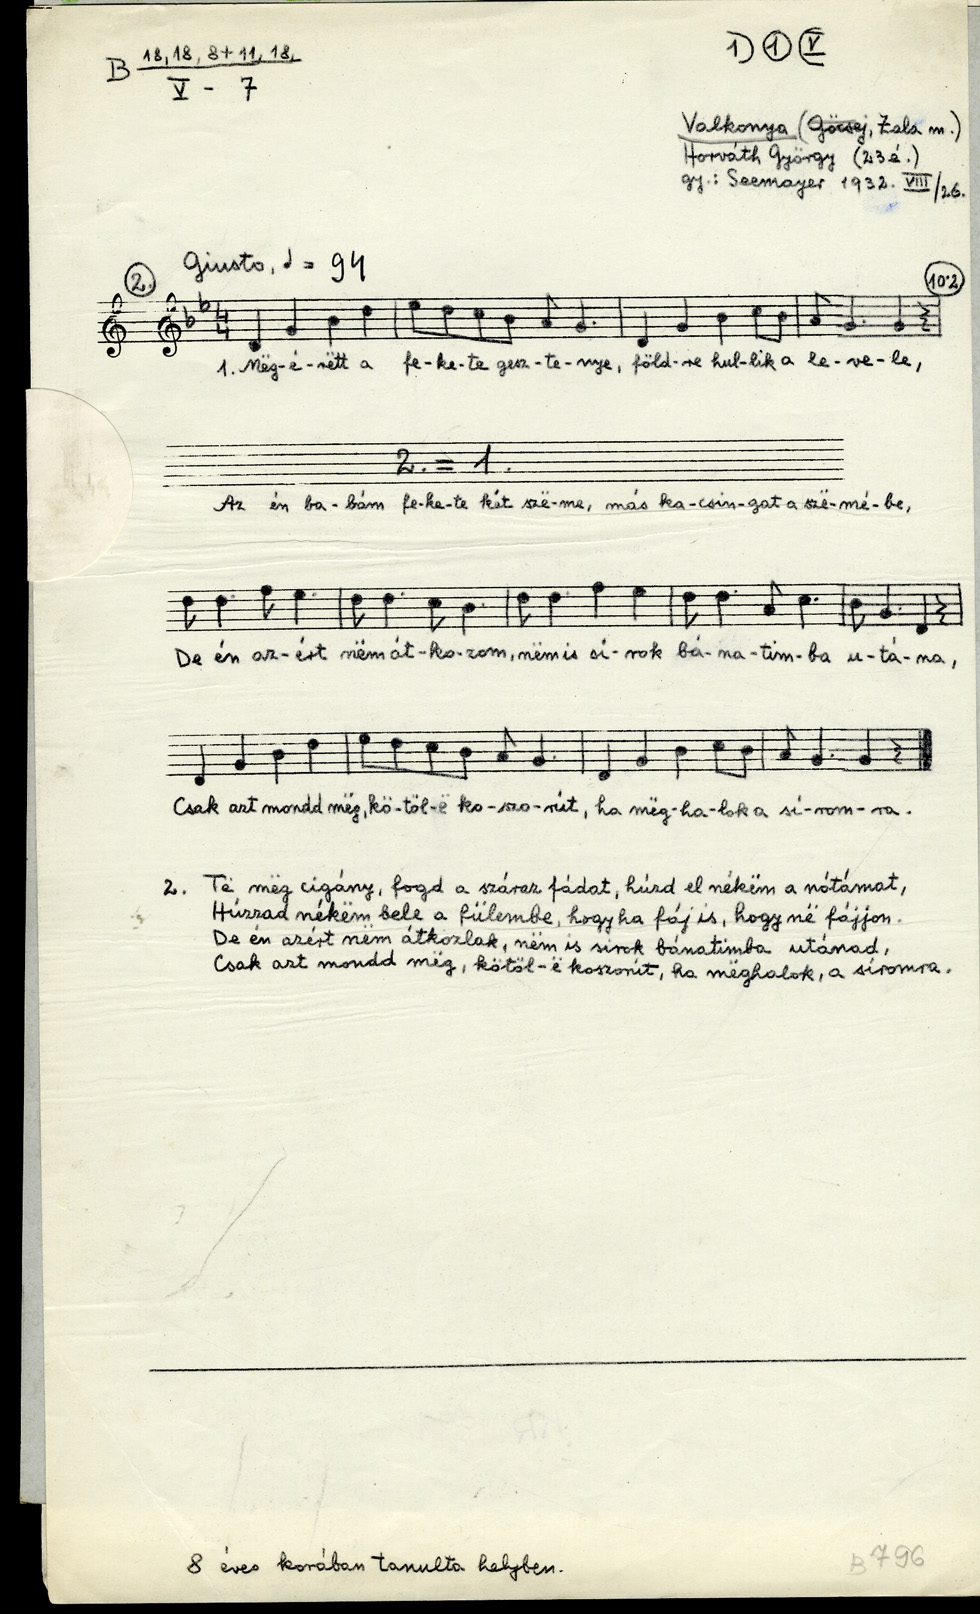 B 18, 18, 8+11, 18,
V - 7
1) 1 V
Valkonya (Göcsej, Zala m.)
Horváth György (23 é.)
gy.: Seemayer 1932. VIII/26.
2. Giusto, ♩ = 94
102
1. Mëg-é-rëtt a fe-ke-te gesz-te-nye, föld-re hul-lik a le-ve-le,
2. = 1.
Az én ba-bám fe-ke-te két szë-me, más ka-csin-gat a szë-mé-be,
De én az-ért nëm át-ko-zom, nëm is si-rok bá-na-tim-ba u-tá-na,
Csak azt mondd mëg, kö-töl-ë ko-szo-rút, ha mëg-ha-lok a sí-rom-ra.
2. Të mëg cigány, fogd a száraz fádat, húzd el nékëm a nótámat,
Húzzad nékëm bele a fülembe, hogyha fáj is, hogy në fájjon.
De én azért nëm átkozlak, nëm is sirok bánatimba utánad,
Csak azt mondd mëg, kötöl-ë koszorút, ha mëghalok, a síromra.
8 éves korában tanulta helyben.
B 796